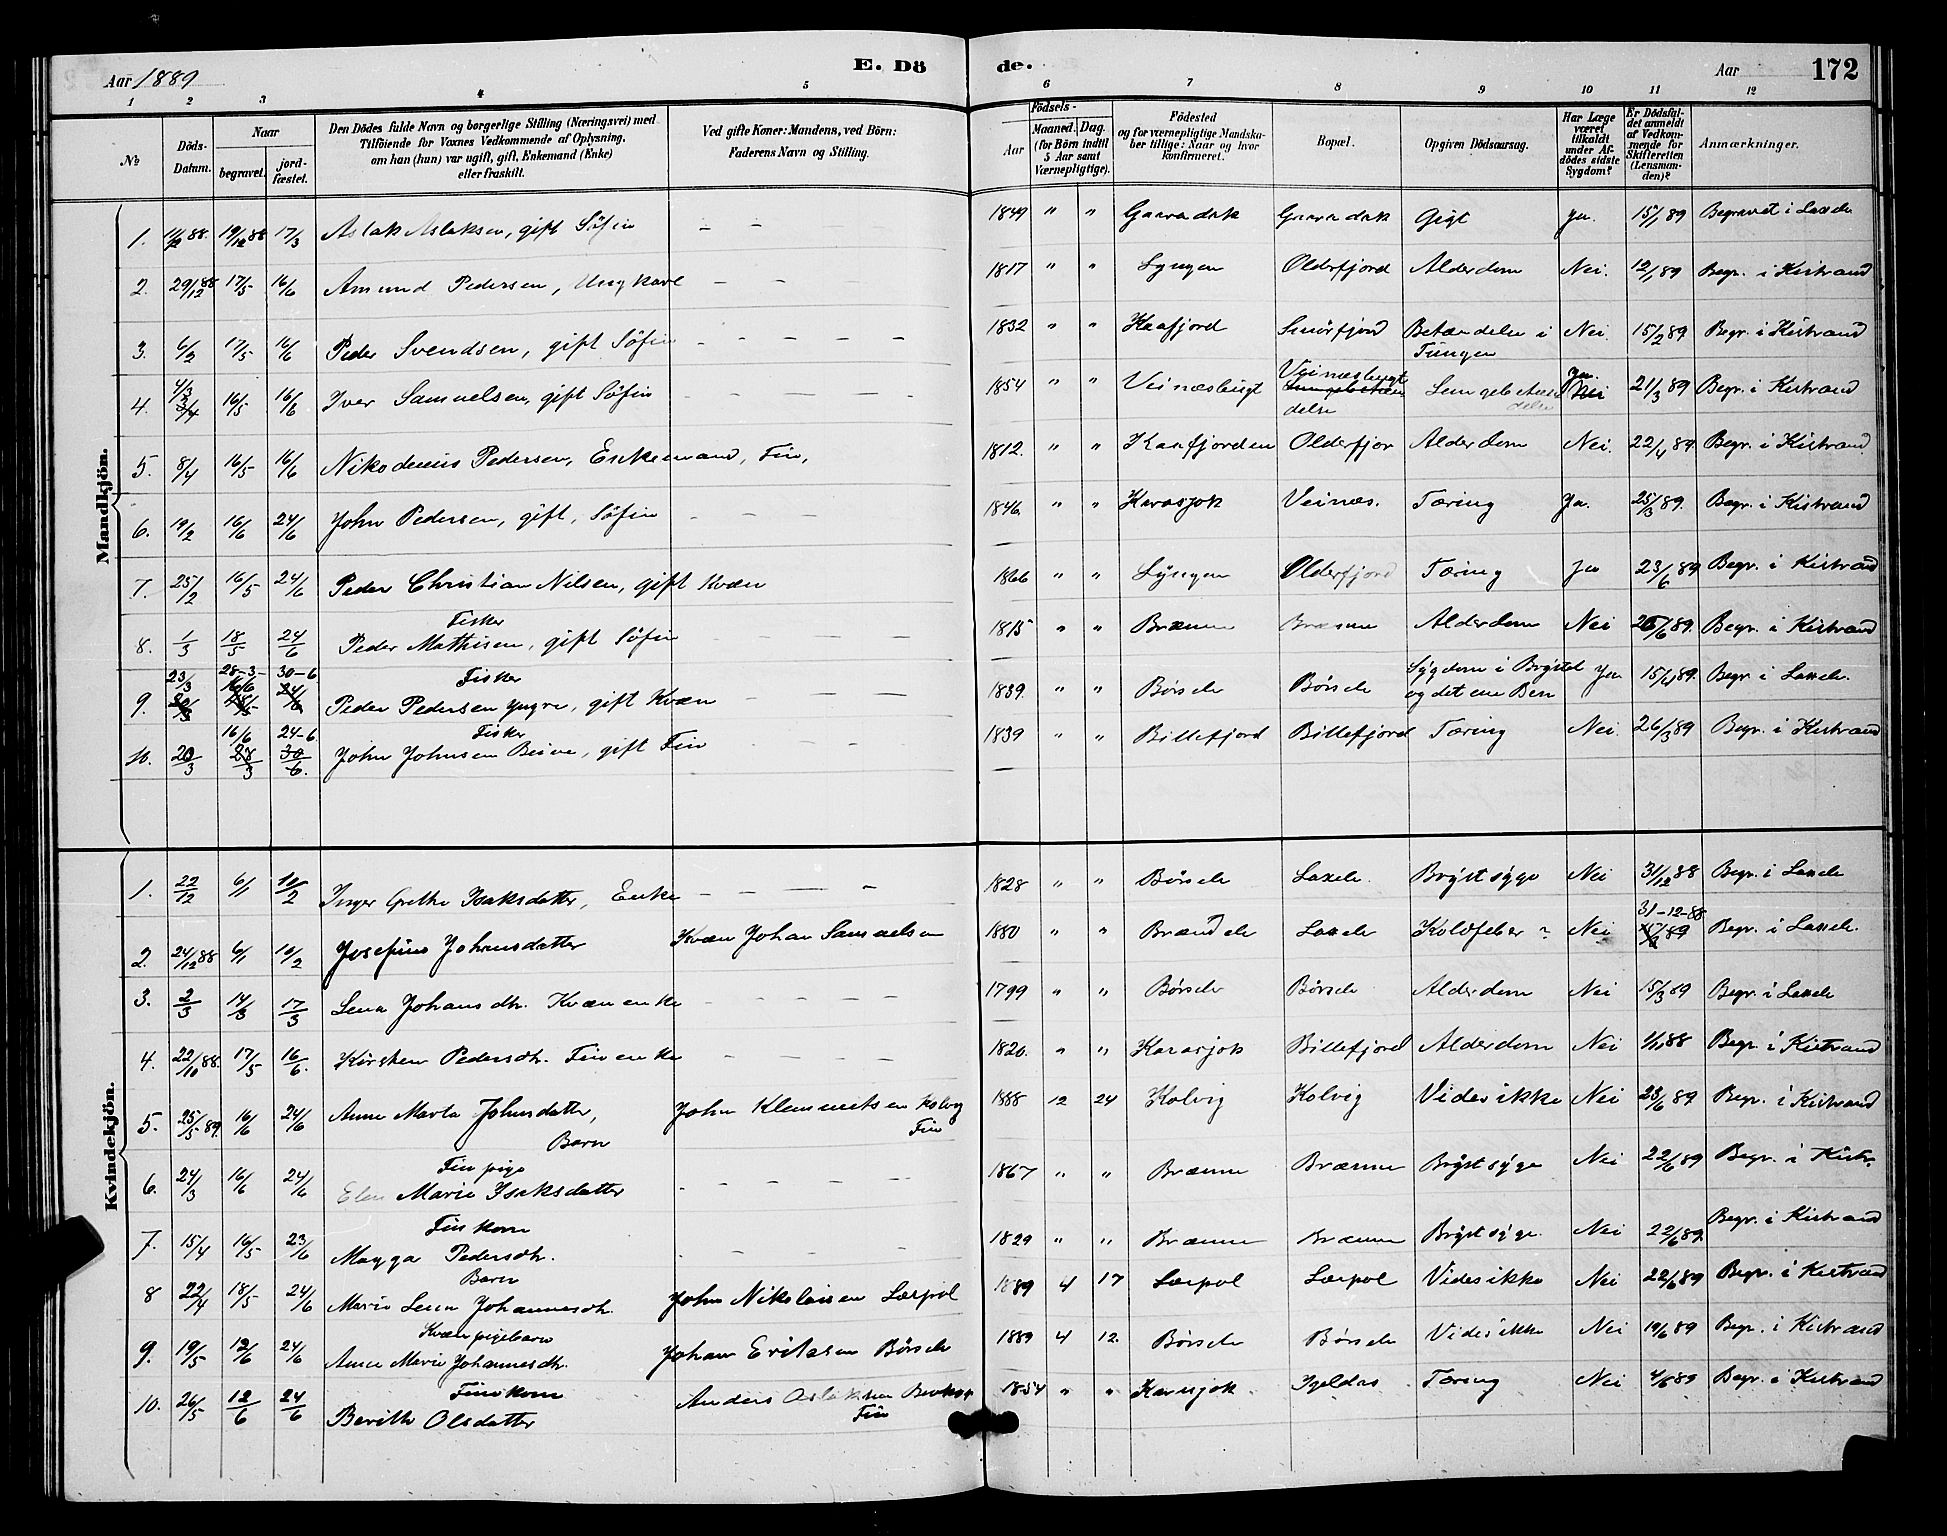 Aar 1889
E. Dö
de.
Aar
172
1 2 3 4 5 6 7 8 9 10 11 12
№
Döds-Datum.
Naar
begravet.
jord-fæstet.
Den Dödes fulde Navn og borgerlige Stilling (Næringsvei) med
Tilföiende for Voxnes Vedkommende af Oplysning,
om han (hun) var ugift, gift, Enkemand (Enke)
eller fraskilt.
Ved gifte Koner: Mandens, ved Börn:
Faderens Navn og Stilling.
Födsels-
Aar
Maaned. Dag.
(for Börn indtil
5 Aar samt
Værnepligtige).
Födested
og for værnepligtige Mandska-
ber tillige: Naar og hvor
konfirmeret.
Bopæl.
Opgiven Dödsaarsag.
Har Læge
været
tilkaldt
under Af-
dödes sidste
Sygdom?
Er Dödsfal-
det anmeldt
af Vedkom-
mende for
Skifteretten
(Lensman-
den)?
Anmærkninger.
Mandkjön.
1. 19/12 88 17/3 Aslak Aslaksen, gift Söfin - - 1849 " " Gaaradak Gaaradak Gigt Ja. 15/1 89 Begravet i Laxelv
2. 29/12 88 17/5 16/6 Amund Pedersen, Ungkarl - - 1817 " " Lyngen Olderfjord Alderdom Nei. 12/1 89 Begr. i Kistrand
3. 6/2 17/5 16/6 Peder Svendsen, gift Söfin - - - - - 1832 " " Kaafjord Smörfjord Betændelse i Tungen Nei. 15/2 89 Begr. i Kistrand
4. 4/3 16/5 16/6 Iver Samuelsen, gift Söfin - - - 1854 " " Veinæsbugt Veinæsbugt Lungebetændelse Ja. Nei 21/3 89 Begr. i Kistrand
5. 8/4 16/5 16/6 Nikodemus Pedersen, Enkemand, Fin, 1812. " " Kaafjorden Olderfjor Alderdom Nei. 22/4 89 Begr. i Kistrand
6. 19/2 16/6 24/6 John Pedersen, gift, Söfin - - - 1846. " " Karasjok Veinæs. Tæring Ja. 25/3 89. Begr. i Kistrand
7. 25/2 16/5 24/6 Peder Christian Nilsen, gift Kvæn 1866 " " Lyngen Olderfjord Tæring Ja 23/6 89 Begr. i Kistrand
Fisker
8. 1/3 18/5 24/6 Peder Mathisen, gift Söfin - - - - 1815 " " Brænne Brænne Alderdom Nei 89. Begr. i Kistrand
23/3 28-3- 30-6 Fisker
9. 16/6 24/6 Peder Pedersen yngre, gift Kvæn - - - 1839. " " Börselv Börselv Sygdom i Brystet og det ene Ben Ja 15/4 89. Begr. i Laxelv.
16/6 24-6 Fisker
10. 20/3 28/3 30/6. John Johnsen Beive, gift Fin - - - 1839 " " Billefjord Billefjord Tæring Nei. 26/3 89 Begr. i Kistrand
Kvindekjön.
1. 22/12 6/1 10/2 Inger Grethe Isaksdatter, Enke - - - - 1828 " " Börselv Laxelv. Brystsyge Nei 31/12 88 Begr. i Laxelv
31-12-88
2. 24/12 88 6/1 10/2 Josefine Johansdatter Kvæn Johan Samuelsen 1880 " " Brændelv Laxelv Koldfeber ? Nei Begr. i Laxelv.
3. 2/3 14/3 17/3 Lena Johansdtr. Kvænenke - - - - - 1799 " " Börselv Börselv Alderdom Nei 15/3 89 Begr. i Laxelv
4. 22/10 88. 17/5 16/6. Kirsten Pedersdtr. Finenke - - - - 1820. " " Karasjok Billefjord Alderdom Nei 1/11 88 Begr. i Kistrand
5. 25/5 89. 16/6 24/6 Anne Marta Johnsdatter, Barn John Klemmetsen Kolvig Fin 1888 12 24 Kolvig Kolvig Vides ikke Nei 23/6 89. Begr. i Kistrand
Finpige
6. 24/3 16/6 24/6 Elen Marie Isaksdatter - - - - - 1867 " " Brænne Brænne Brystsyge Nei 22/6 89 Begr. i Kistr.
Finkone
7. 15/4 16/5 23/6 Magga Pedersdtr. - - - - - 1829 " " Brænne Brænne Brystsyge. Nei 22/6 89. Begr. i Kistrand
Barn
8 22/4 18/5 24/6 Marie Lena Johannesdtr. John Nikolaisen Lærpol 1889 4 17 Lærpol Lærpol Vides ikke Nei 22/6 89 Begr. i Kistrand
Kvænpigebarn
9. 19/5 12/6 24/6 Anne Marie Johannesdtr. Johan Eriksen Börselv 1889 4 12. Börselv Börselv Vides ikke Nei 19/6 89 Begr. i Kistrand
Finnkone
10. 26/5 12/6 24/6 Berithe Olsdatter Anders Fin 1854 " " Karasjok. Igeldas Tæring Nei 4/6 89 Begr. i Kistrand